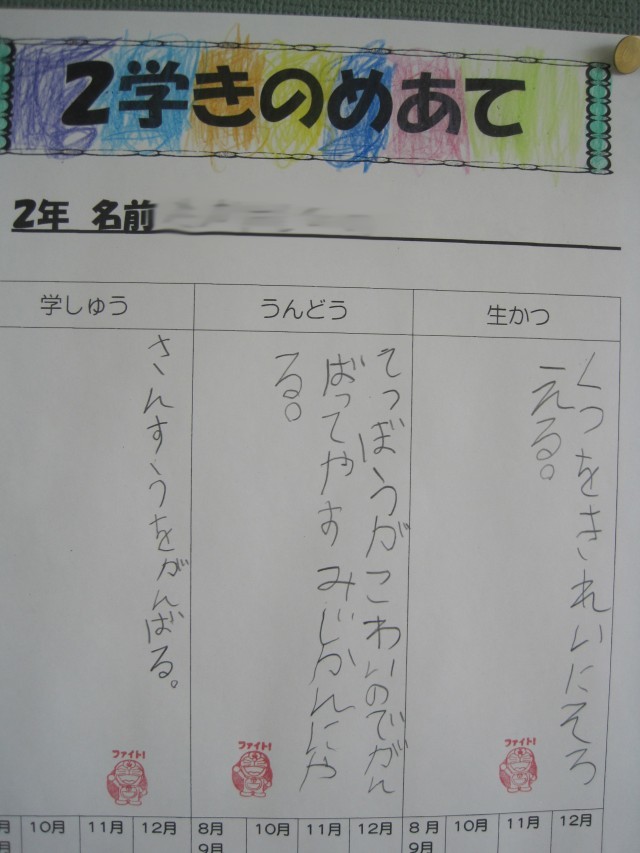 2学きのめあて
2年 名前
学しゅう
うんどう
生かつ
くつをきれいにそろ
える。
てつぼうがこわいのでがん
ばってやすみじかんにや
る。
さんすうをがんばる。
ファイト!
ファイト!
ファイト!
月 10月 11月 12月 8月 10月 11月 12月 8月 10月 11月 12月
月 9月 9月